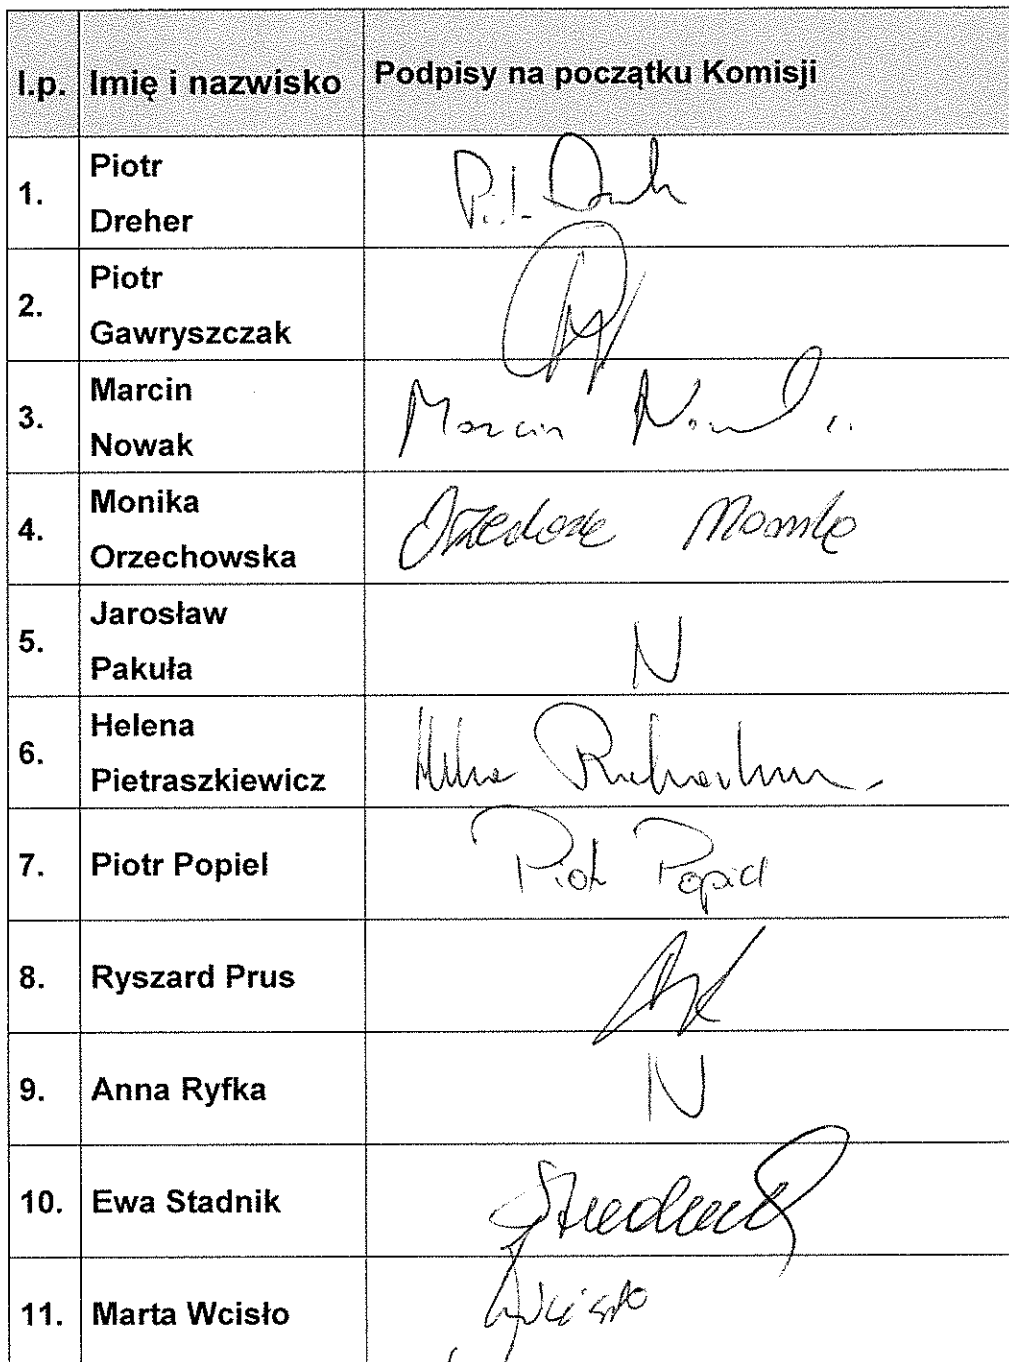 l.p. Imię i nazwisko Podpisy na początku Komisji
1. Piotr
Dreher
2. Piotr
Gawryszczak
3. Marcin
Nowak
Marcin Nowak
4. Monika
Orzechowska
5. Jarosław
Pakuła
N
6. Helena
Pietraszkiewicz
7. Piotr Popiel Piotr Popiel
8. Ryszard Prus
9. Anna Ryfka N
10. Ewa Stadnik
11. Marta Wcisło Wcisło